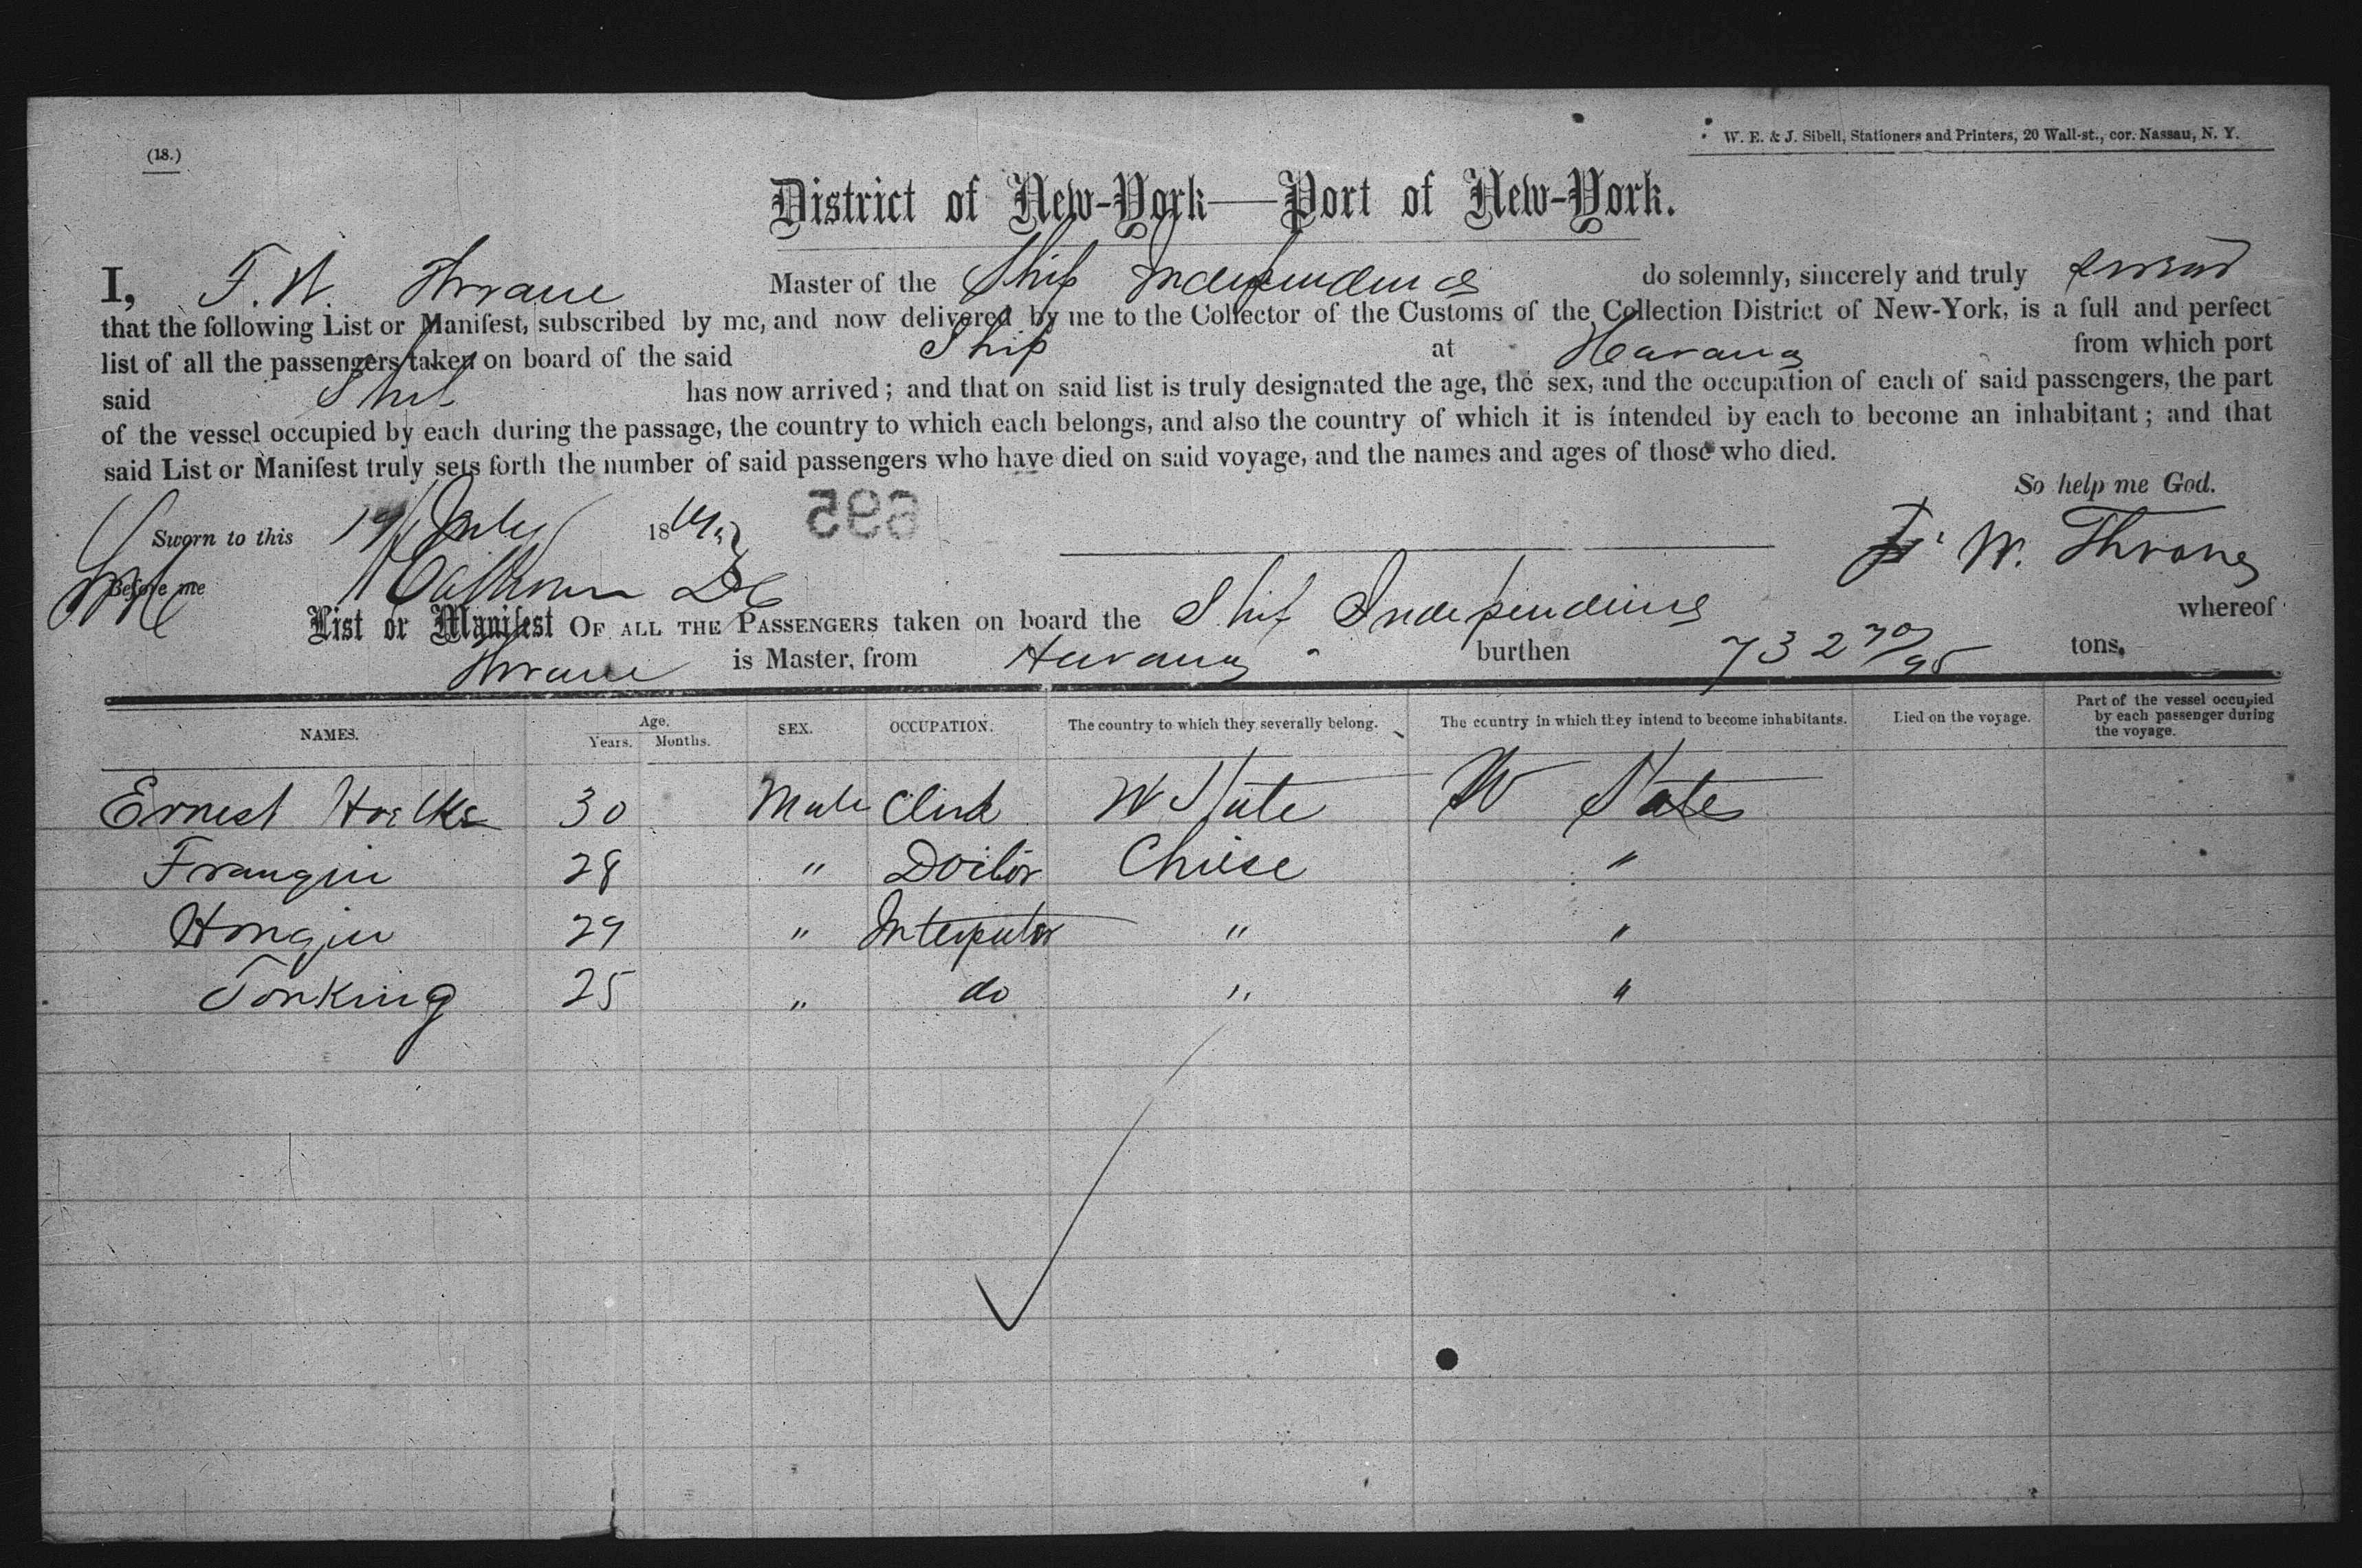 (18.)
W. E. & J. Sibell, Stationers and Printers, 20 Wall-st., cor. Nassau, N. Y.
District of New-York—Port of New-York.
I, F. W. Thrane Master of the Ship Independence do solemnly, sincerely and truly swear
that the following List or Manifest, subscribed by me, and now delivered by me to the Collector of the Customs of the Collection District of New-York, is a full and perfect
list of all the passengers taken on board of the said Ship at Havana from which port
said Ship has now arrived; and that on said list is truly designated the age, the sex, and the occupation of each of said passengers, the part
of the vessel occupied by each during the passage, the country to which each belongs, and also the country of which it is intended by each to become an inhabitant; and that
said List or Manifest truly sets forth the number of said passengers who have died on said voyage, and the names and ages of those who died.
So help me God.
Sworn to this 19 July 18
695
F. W. Thrane
Before me Calhoun DC
List or Manifest OF ALL THE PASSENGERS taken on board the Ship Independence whereof
Thrane is Master, from Havana burthen 732 70/95 tons.
NAMES. Age. Years. Months. SEX. OCCUPATION. The country to which they severally belong. The country in which they intend to become inhabitants. Died on the voyage. Part of the vessel occupied by each passenger during the voyage.
Ernest 30 Male Clerk W State W States
Franqin 28 " Doctor Chiese "
Honqin 29 " Interputor " "
Tonking 25 " do " "